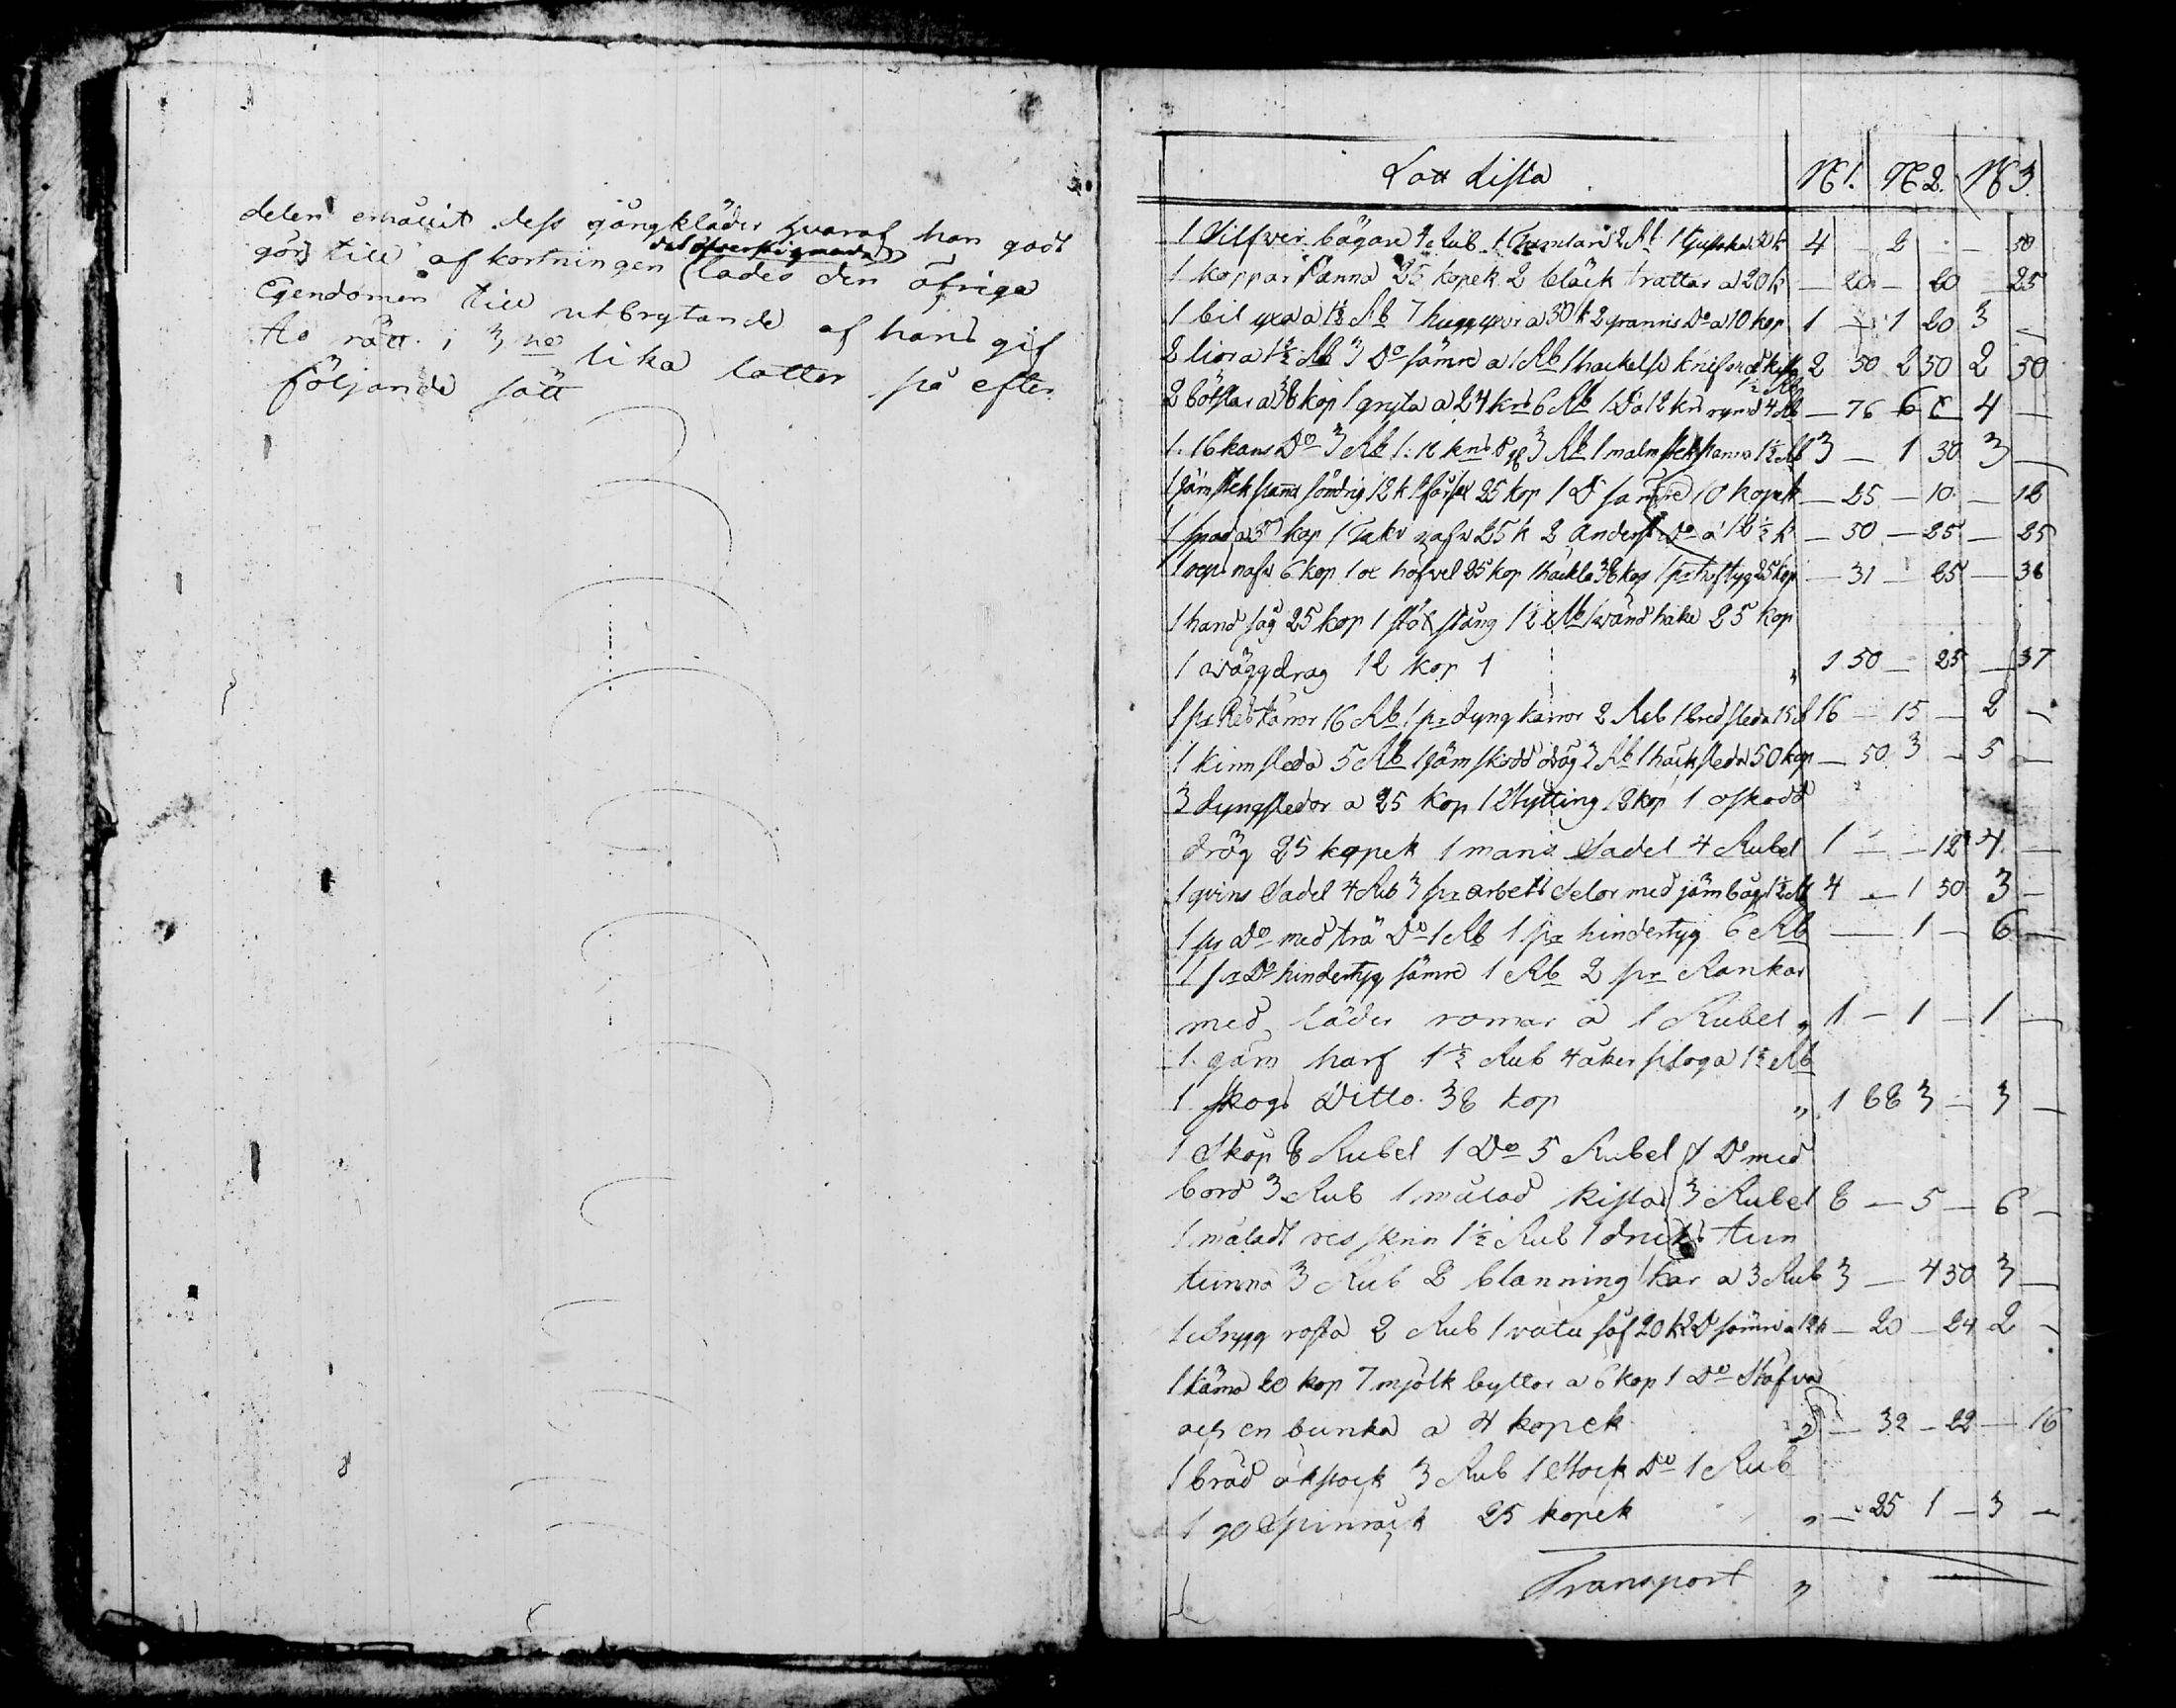 delen emåttit dess gångkläder hvaraf han godt
det öfverstigande
gör till afkortningen lades den öfriga
Egendomen till utbrytande af hans gif
to rätt i 3 ne lika lotter på efter
följande sätt
Lott Lista N 1. N 2. N 3.
1 Silfver bägare 4 Rub 1 Tumlare 2 Rb 1 50 k 4 — 2 — — 50
1 koppar Panna 25 kopek 2 bläck trattar a 20 k — 20 — 20 — 25
1 bil yxa a 1½ Rb 7 huggyxor a 30 k 2 grannis Do a 10 kop 1 — 1 20 3 —
2 liar a 1½ Rb 3 Do sämre a 1 Rb 1 hackelse knif med kista 1½ Rb 2 50 2 50 2 50
2 bötslar a 38 kop 1 gryta a 24 kns 6 Rb 1 Do a 12 kns rymd 4 Rb — 76 6 — 4 —
1. 16 kans Do 3 Rb 1: 12 kns Do 3 Rb 1 malm stek panna 1½ Rb 3 — 1 50 3 —
1 jäm stek panna söndrig 12 k 25 kop 1 Do sämre 10 kopek — 25 — 10 — 12
1 spad a 50 kop 1 Taks nafv 25 k 2 Andersl Do a 12½ k — 50 — 25 — 25
1 refs nafv 6 kop 1 ox höfvel 25 kop 1 häckla 38 kop 1 pr 25 kop — 31 — 25 — 38
1 hand såg 25 kop 1 stöt stång 1½ Rb 1 vänd hake 25 kop
1 väggdrag 12 kop 1 " 1 50 — 25 — 37
1 pr Res kärror 16 Rb 1 pr dyng kärror 2 Rub 1 bredsleda 15 R 16 — 15 — 2 —
1 kinnsleda 5 Rb 1 jäm skodd drög 3 Rb 1 häcksleda 50 kop — 50 3 — 5 —
3 dyngsledor a 25 kop 1 Stytting 12 kop 1 oskodd
drög 25 kopek 1 mans Sadel 4 Rubel 1 — — 12 4 —
1 qvins Sadel 4 Rub 3 pr arbets selor med jämbåg 1½ Rb 4 — 1 50 3 —
1 pr Do med trä Do 1 Rb 1 pr hindertyg 6 Rb — — 1 — 6 —
1 pr Do hindertyg sämre 1 Rb 2 pr Rankor
med läder romar a 1 Rubel " 1 — 1 — 1 —
1 jäm harf 1½ Rub 4 åker ploga 1½ Rb
1 skogs Ditto 38 kop " 1 88 3 — 3 —
1 Skåp 8 Rubel 1 Do 5 Rubel 1 Do med
bord 3 Rub 1 målad kista 3 Rubel 8 — 5 — 6 —
1 måladt res skrin 1½ Rub 1 driks tun
tunna 3 Rub 2 blanning kar a 3 Rub 3 — 4 50 3 —
1 Brygg rosta 2 Rub 1 vatu så 20 k 2 Do sämre a 12 k — 20 — 24 2 —
1 kärna 20 kop 7 mjölk byttor a 6 kop 1 Do Stäfva
och en bunka a 4 kopek " — 32 — 22 — 16
1 bräd åkstock 3 Rub 1 Stock Do 1 Rub
1 go Spinrock 25 kopek " — 25 1 — 3 —
Transport "